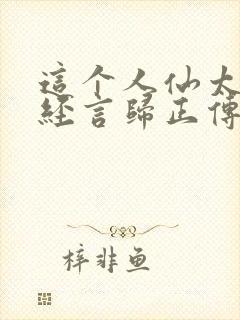 這个人仙太
經言歸正傳
梓非鱼